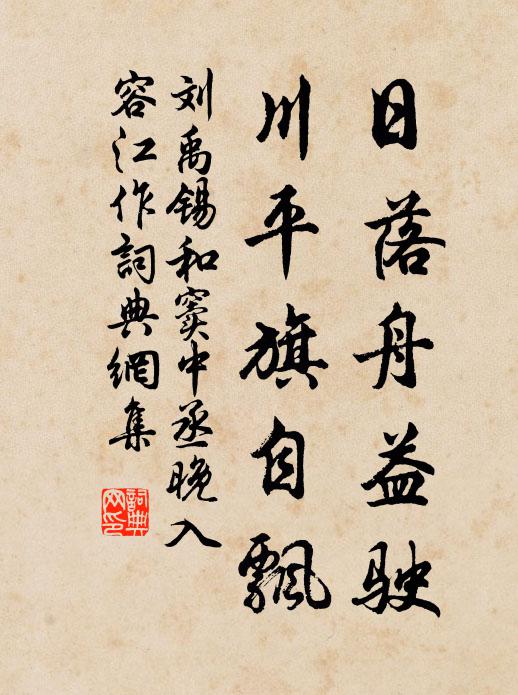 日落舟益駛
川平旗自飄
刘禹锡和窦中丞晚入
容江作詞典網集
詞典网印